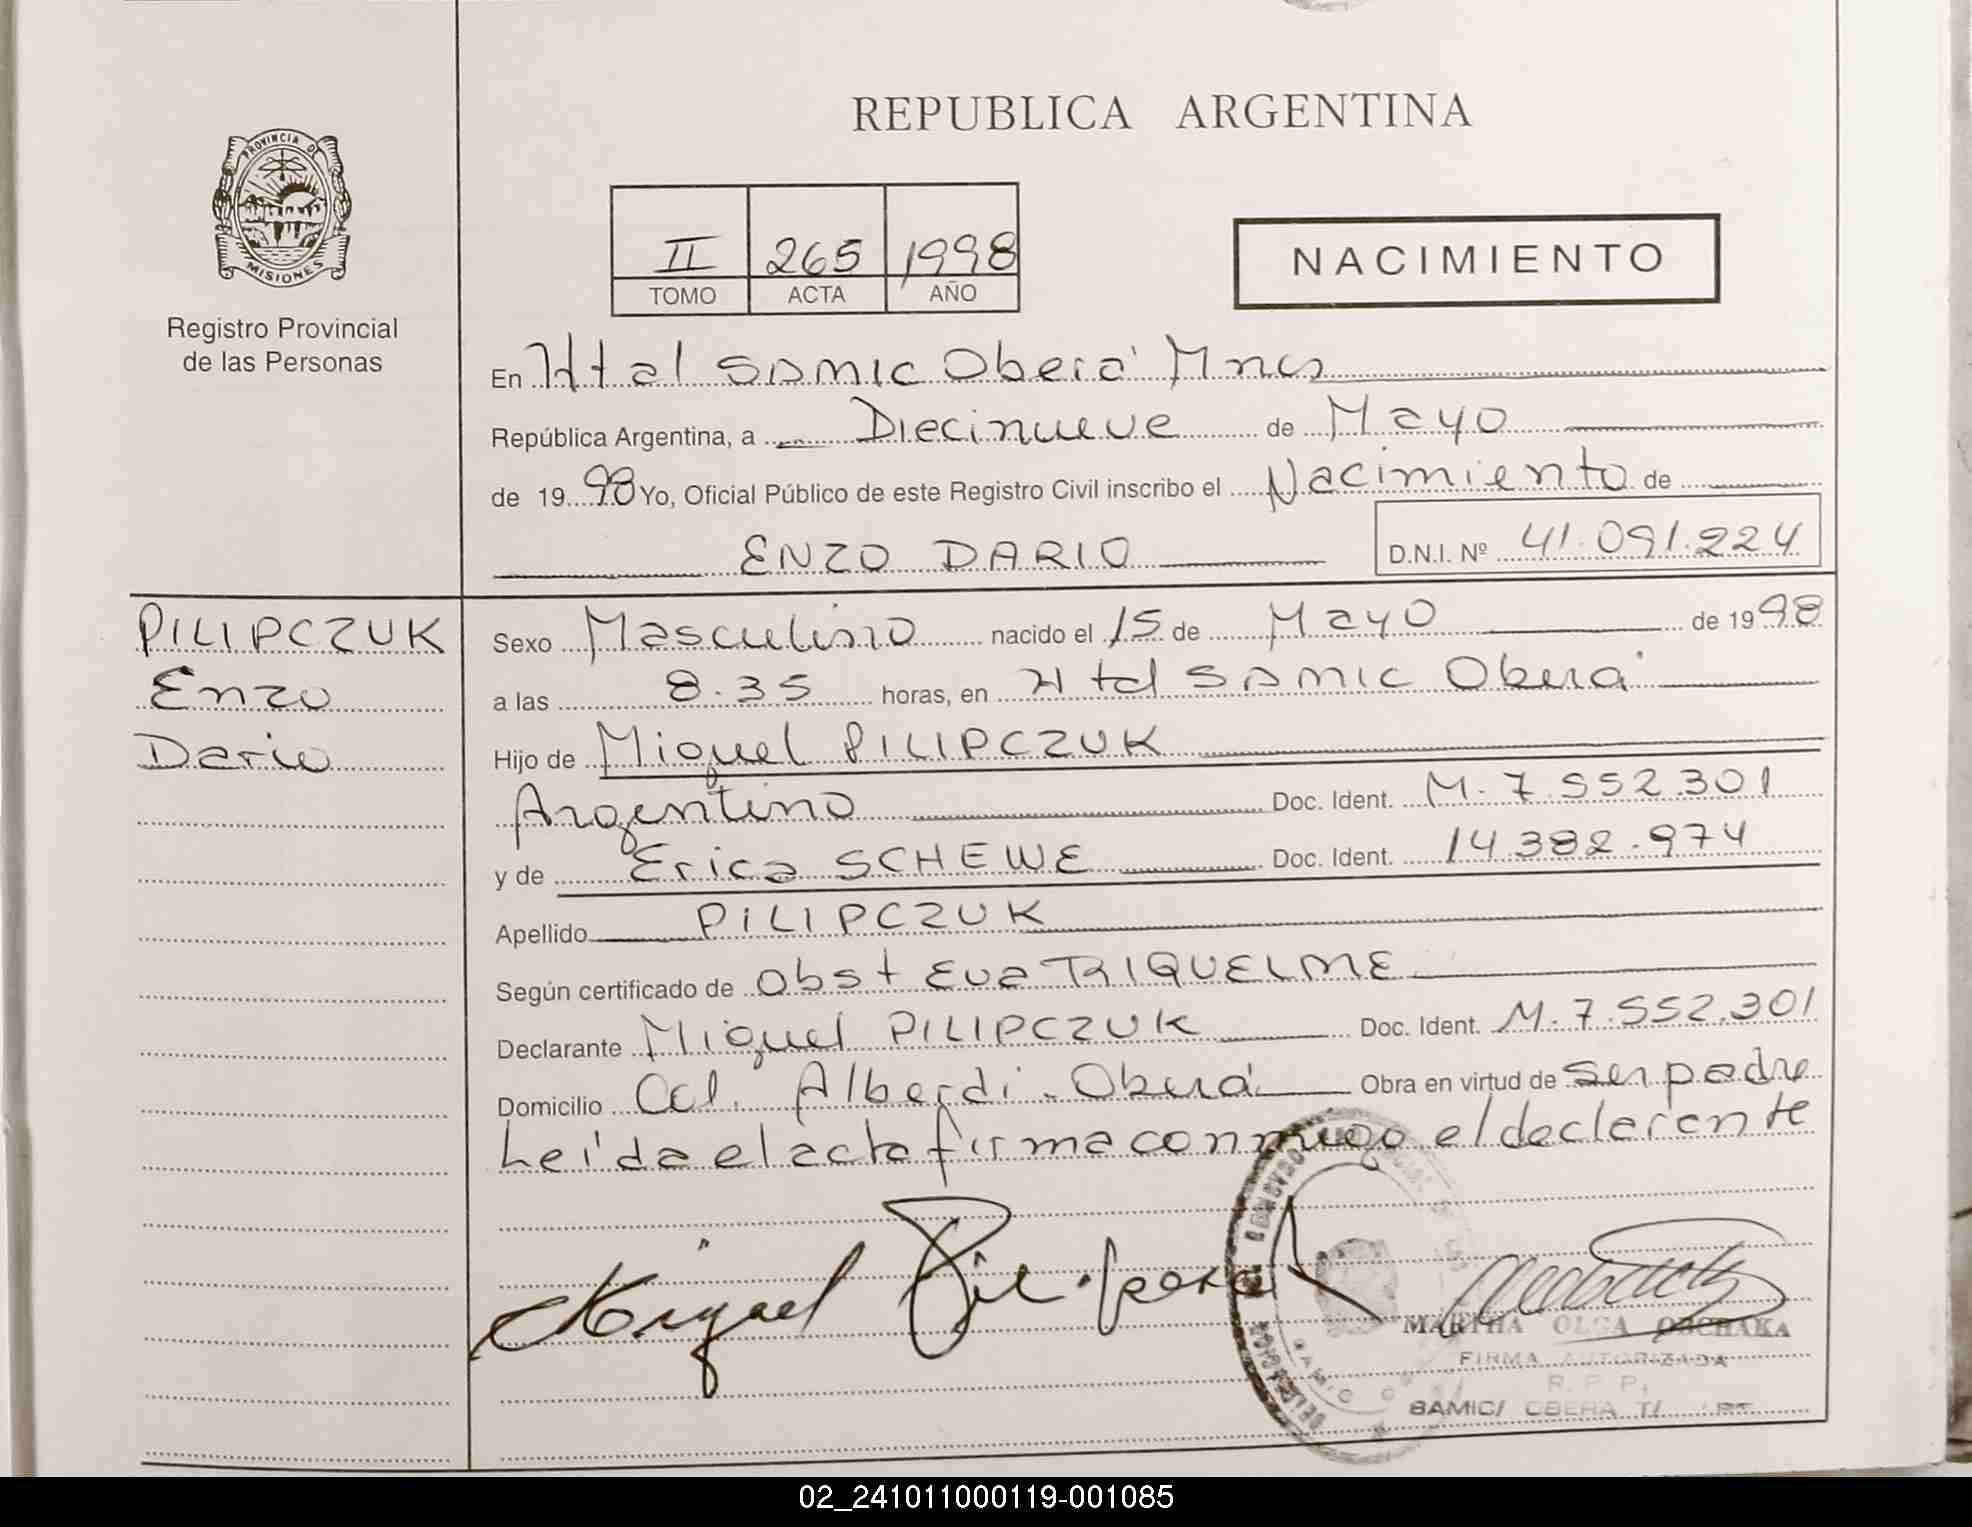 REPUBLICA ARGENTINA
PROVINCIA DE
MISIONES
Registro Provincial
de las Personas
II 265 1998
TOMO ACTA AÑO
NACIMIENTO
En Htal SAMIC Oberá Mnes
República Argentina, a Diecinueve de Mayo
de 1998 Yo, Oficial Público de este Registro Civil inscribo el Nacimiento de
ENZO DARIO D.N.I. Nº 41.091.224
PILIPCZUK
Enzo
Dario
Sexo Masculino nacido el 15 de Mayo de 1998
a las 8.35 horas, en Htal SAMIC Oberá
Hijo de Miguel PILIPCZUK
Argentino Doc. Ident. M. 7.552.301
y de Erica SCHEWE Doc. Ident. 14.382.974
Apellido PILIPCZUK
Según certificado de Obst Eva RIQUELME
Declarante Miguel PILIPCZUK Doc. Ident. M. 7.552.301
Domicilio Ccl. Alberdi - Oberá Obra en virtud de ser padre
Leída el acta firma conmigo el declarante
Miguel
MARTHA OLGA
FIRMA AUTORIZADA
R. P. P.
SAMIC/ OBERA
02_241011000119-001085